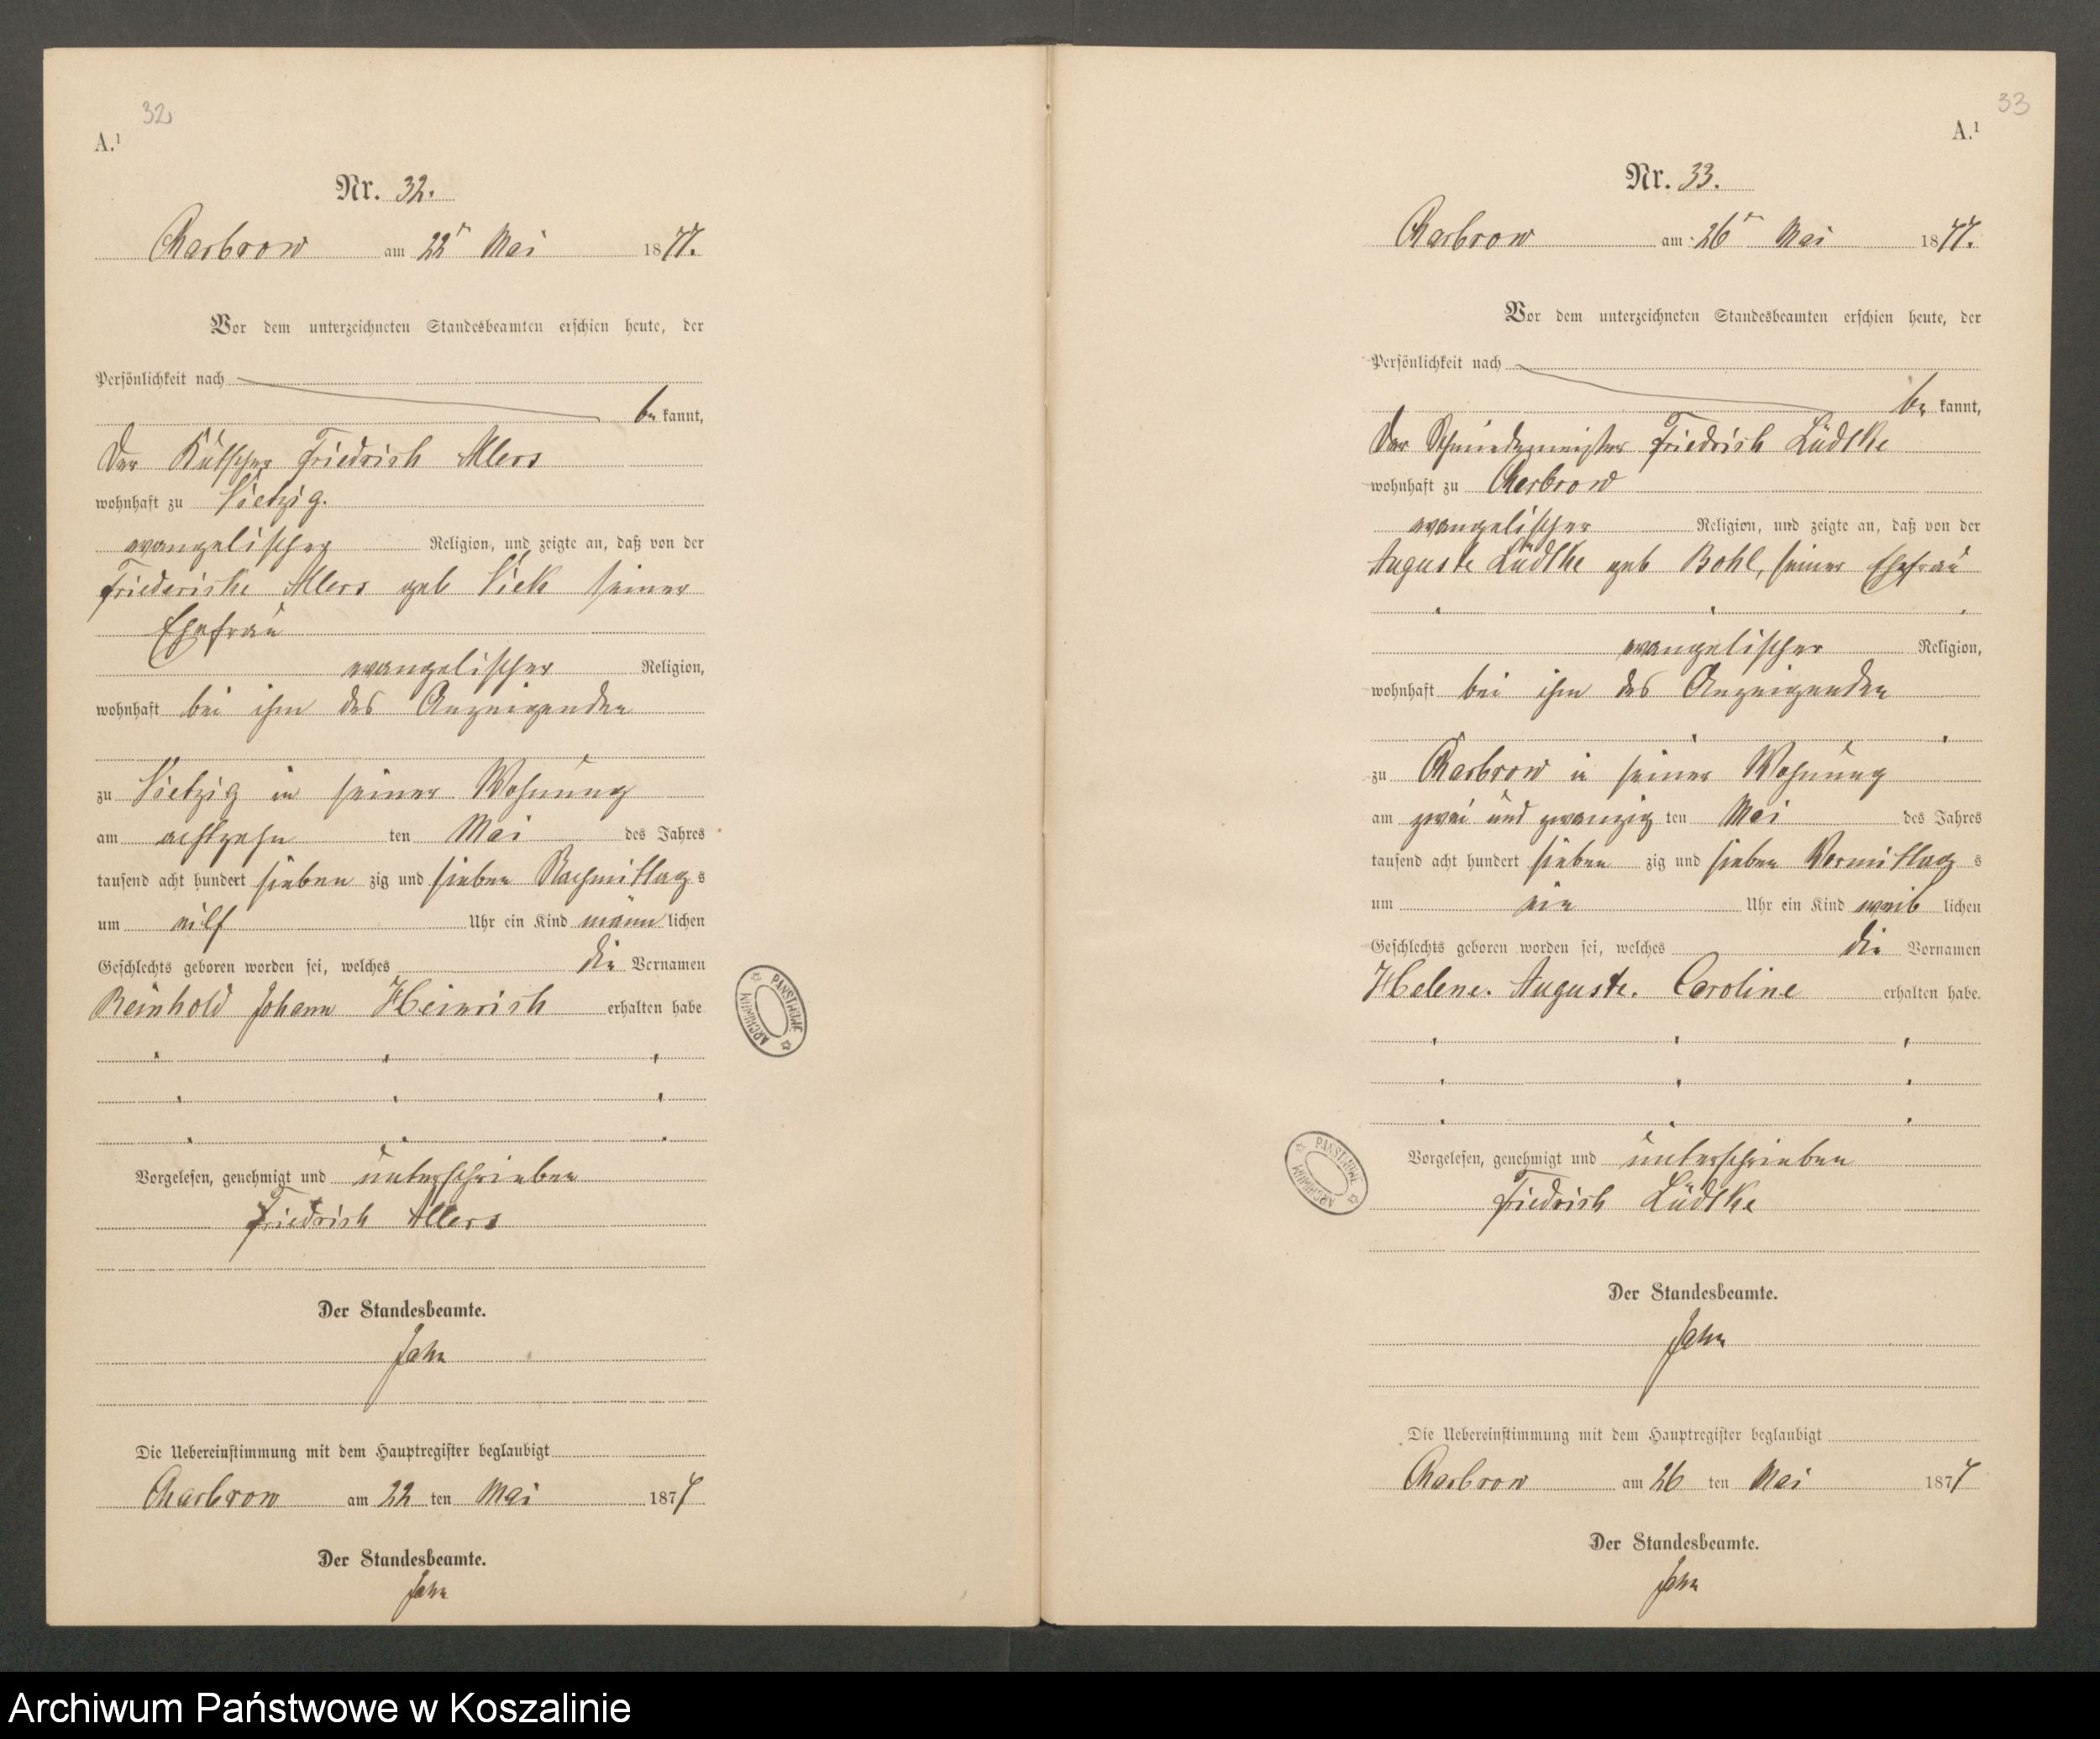 32
A.¹
Nr. 32.
Charbrow am 22ⁿ Mai 1877.
Vor dem unterzeichneten Standesbeamten erschien heute, der
Persönlichkeit nach
be kannt,
Der Kutscher Friedrich Allers
wohnhaft zu Vietzig.
evangelischer Religion, und zeigte an, daß von der
Friederike Allers geb Viek seiner
Ehefrau
evangelischer Religion,
wohnhaft bei ihm des Anzeigenden
zu Vietzig in seiner Wohnung
am achtzehn ten Mai des Jahres
tausend acht hundert sieben zig und sieben Nachmittag s
um eilf Uhr ein Kind männ lichen
Geschlechts geboren worden sei, welches die Vornamen
Reinhold Johann Heinrich erhalten habe
Vorgelesen, genehmigt und unterschrieben
Friedrich Allers
Der Standesbeamte.
Jahn
Die Uebereinstimmung mit dem Hauptregister beglaubigt
Charbrow am 22 ten Mai 1877
Der Standesbeamte.
Jahn
ARCHIWUM PAŃSTWOWE
33
A.¹
Nr. 33.
Charbrow am 26ⁿ Mai 1877.
Vor dem unterzeichneten Standesbeamten erschien heute, der
Persönlichkeit nach
be kannt,
Der Schmiedemeister Friedrich Lüdtke
wohnhaft zu Charbrow
evangelischer Religion, und zeigte an, daß von der
Auguste Lüdtke geb Bohl, seiner Ehefrau
evangelischer Religion,
wohnhaft bei ihm des Anzeigenden
zu Charbrow in seiner Wohnung
am zwei und zwanzig ten Mai des Jahres
tausend acht hundert sieben zig und sieben Vormittag s
um ein Uhr ein Kind weib lichen
Geschlechts geboren worden sei, welches die Vornamen
Helene. Auguste. Caroline erhalten habe.
Vorgelesen, genehmigt und unterschrieben
Friedrich Lüdtke
Der Standesbeamte.
Jahn
Die Uebereinstimmung mit dem Hauptregister beglaubigt
Charbrow am 26 ten Mai 1877
Der Standesbeamte.
Jahn
ARCHIWUM PAŃSTWOWE
Archiwum Państwowe w Koszalinie